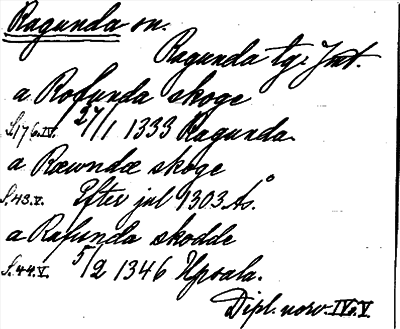 Ragunda sn.
Ragunda tg. Jmt.
a Rofunda skoge
S.176.IV. 27/1 1333 Ragunda.
a Ræwndæ skoge
S.43.V. Efter jul 1303. Ås.
a Rafunda skodde
S.44.V. 5/2 1346 Upsala.
Dipl. norv. IV o. V